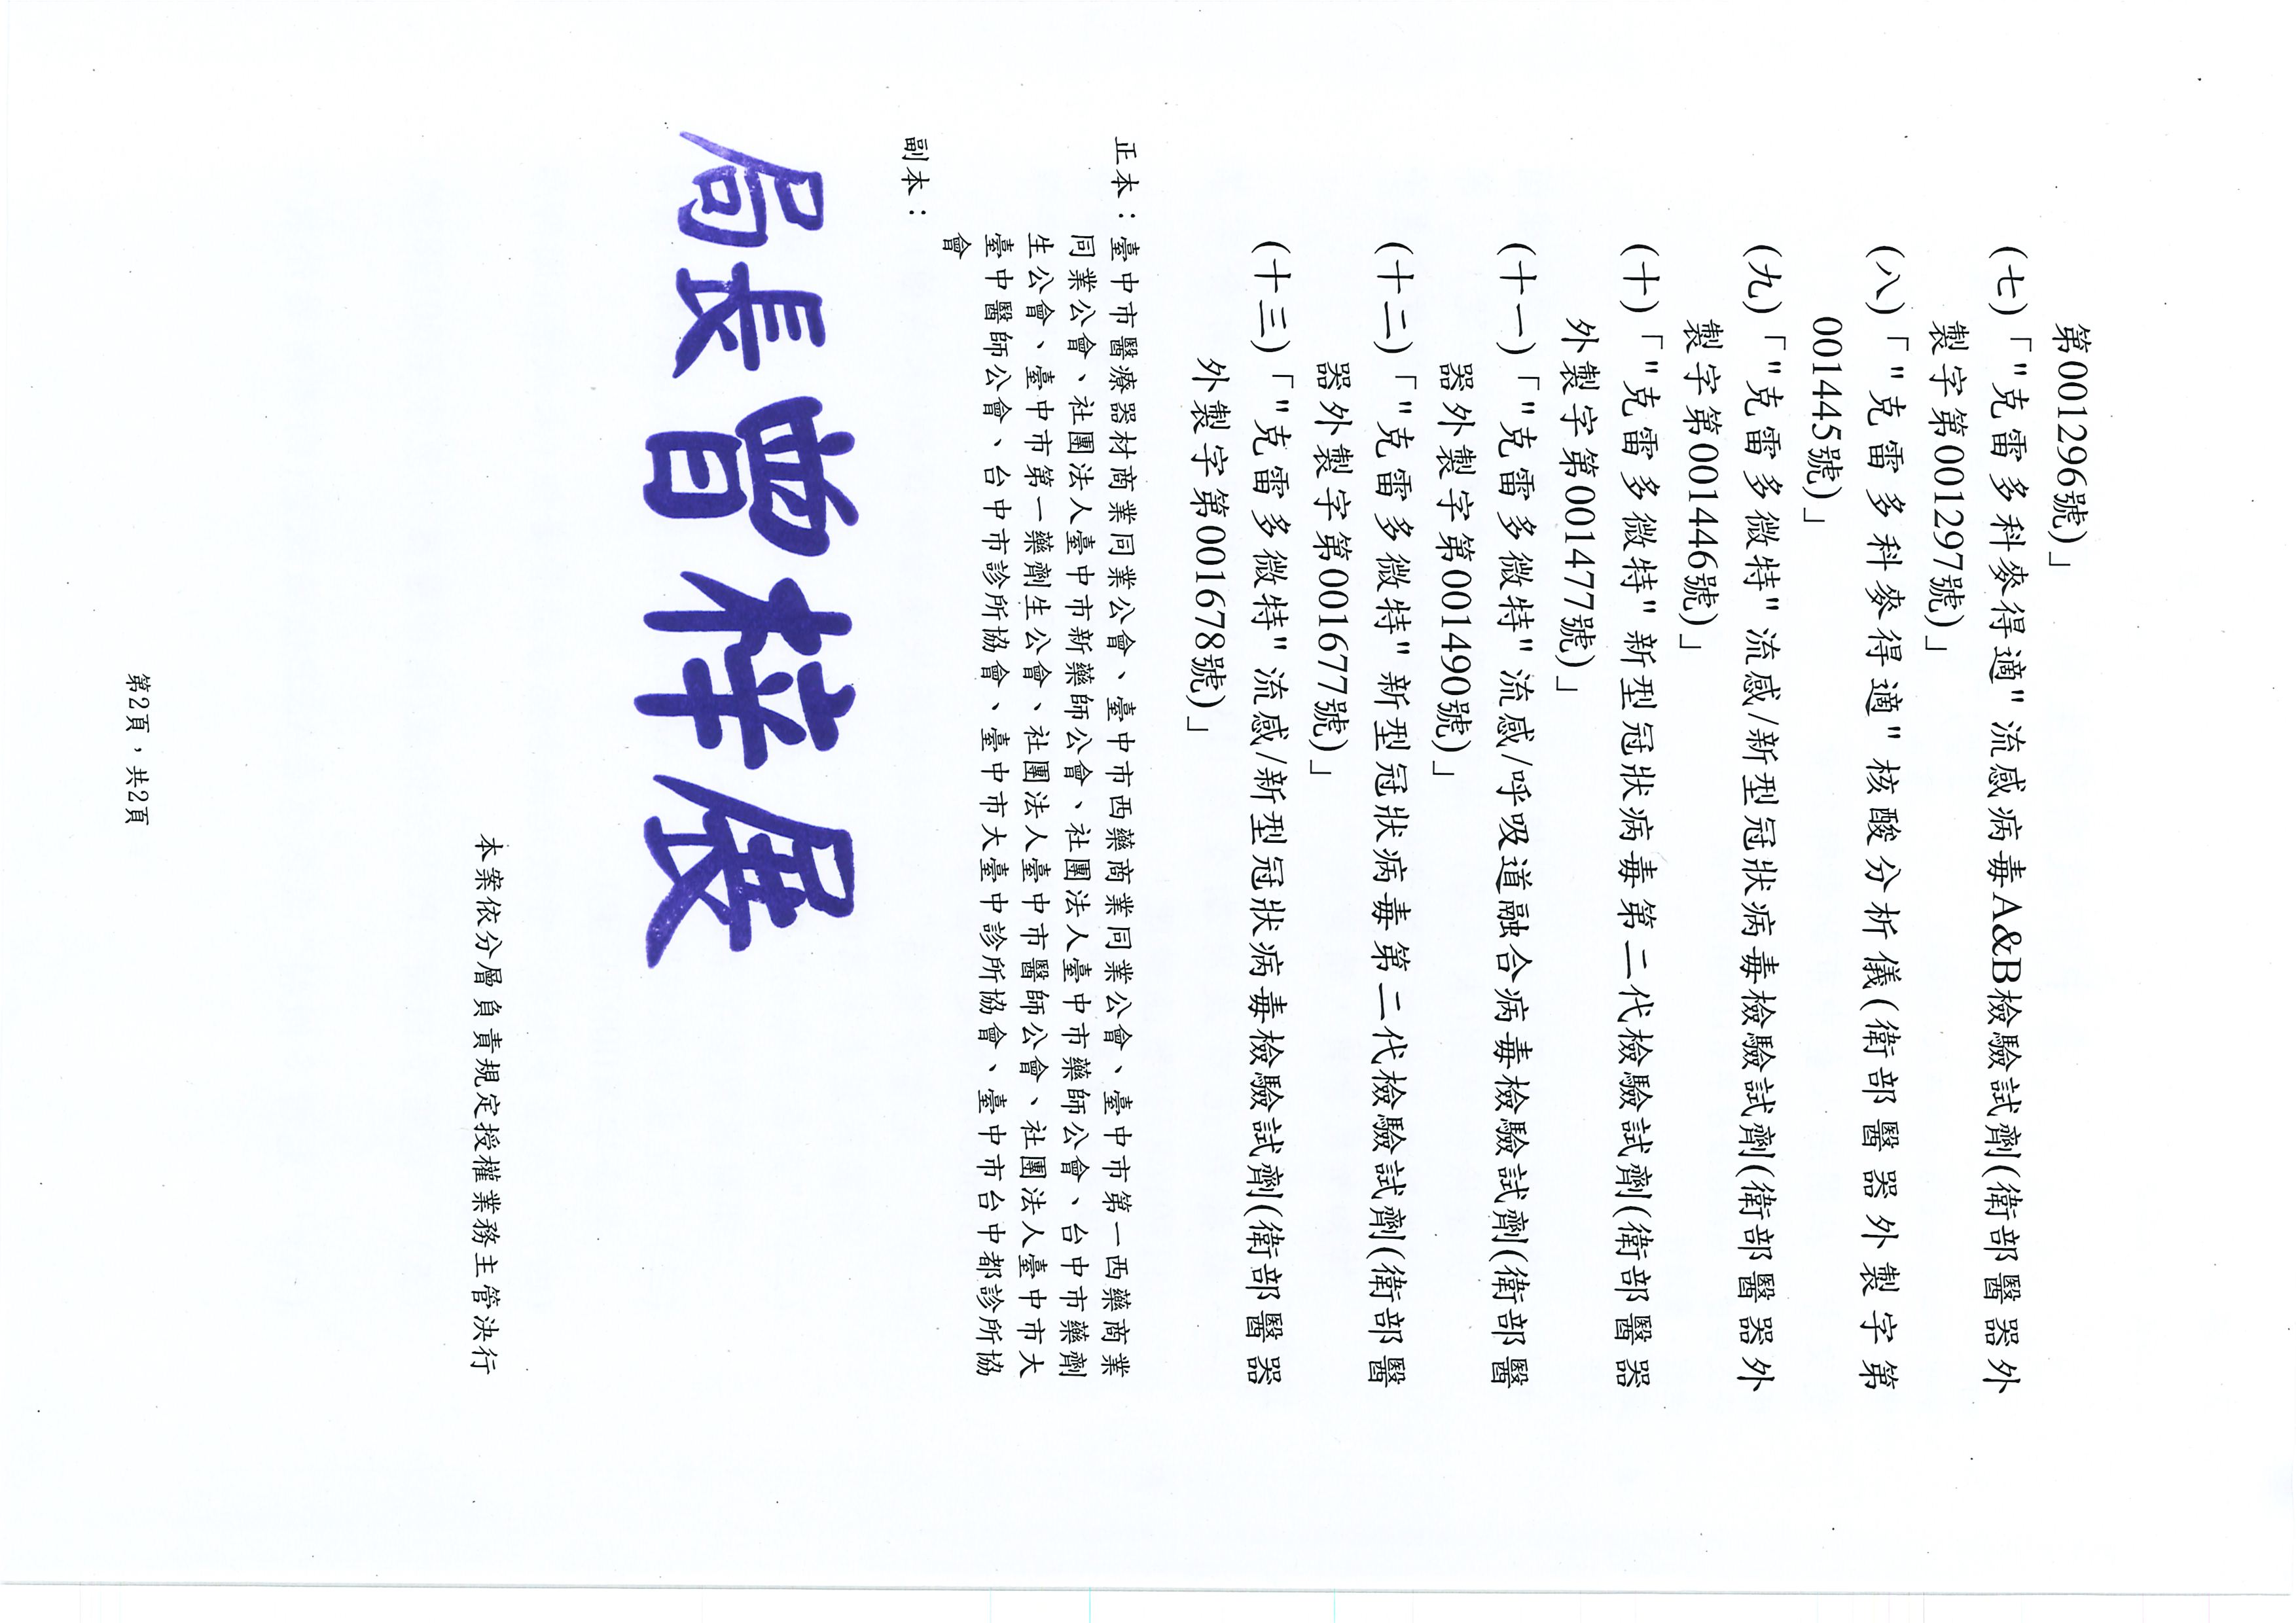 第001296號)」
(七)「"克雷多科麥得適"流感病毒A&B檢驗試劑(衛部醫器外
製字第001297號)」
(八)「"克雷多科麥得適"核酸分析儀(衛部醫器外製字第
001445號)」
(九)「"克雷多微特"流感/新型冠狀病毒檢驗試劑(衛部醫器外
製字第001446號)」
(十)「"克雷多微特"新型冠狀病毒第二代檢驗試劑(衛部醫器
外製字第001477號)」
(十一)「"克雷多微特"流感/呼吸道融合病毒檢驗試劑(衛部醫
器外製字第001490號)」
(十二)「"克雷多微特"新型冠狀病毒第二代檢驗試劑(衛部醫
器外製字第001677號)」
(十三)「"克雷多微特"流感/新型冠狀病毒檢驗試劑(衛部醫器
外製字第001678號)」
正本：臺中市醫療器材商業同業公會、臺中市西藥商業同業公會、臺中市第一西藥商業
同業公會、社團法人臺中市新藥師公會、社團法人臺中市藥師公會、台中市藥劑
生公會、臺中市第一藥劑生公會、社團法人臺中市醫師公會、社團法人臺中市大
臺中醫師公會、台中市診所協會、臺中市大臺中診所協會、臺中市台中都診所協
會
副本：
局長曾梓展
本案依分層負責規定授權業務主管決行
第2頁，共2頁